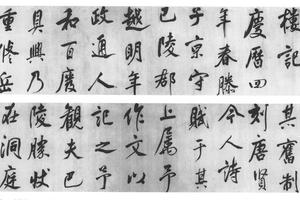 樓記
慶曆四
年春滕
子京守
巴陵郡
越明年
政通人
和百廢
具興乃
重修岳
其舊制
刻唐賢
今人詩
賦于其
上属予
作文以
記之予
観夫巴
陵勝狀
在洞庭